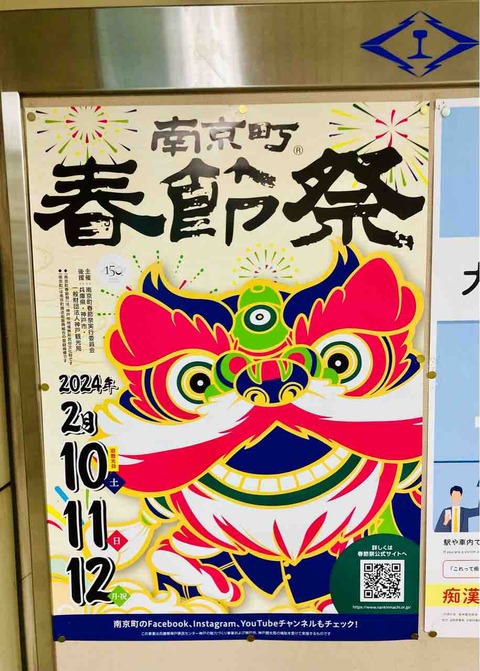 南京町®
春節祭
150
主催：南京町春節祭実行委員会
後援：兵庫県・神戸市・
一般財団法人神戸観光局
2024年
2月
10 土
11 日
12 月・祝
詳しくは
春節祭公式サイトへ
https://www.nankinmachi.or.jp/
南京町のFacebook、Instagram、YouTubeチャンネルもチェック！
駅や車内で
「これって痴
痴漢